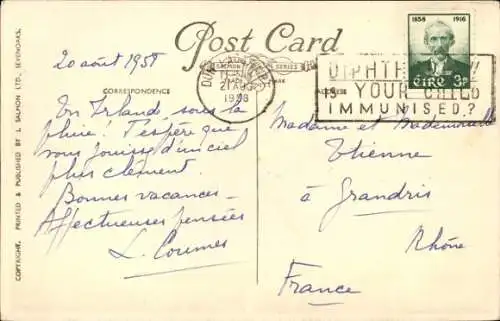 Post Card
SALMON SERIES
CORRESPONDENCE
ADDRESS
COPYRIGHT. PRINTED & PUBLISHED BY J. SALMON LTD., SEVENOAKS.
20 août 1958
En Irlande, sous la
pluie! J'espère que
vous jouissez d'un ciel
plus clément.
Bonnes vacances -
Affectueuses pensées
L. Coumes
21 AUG
1958
DIPHTHERIA!
IS YOUR CHILD
IMMUNISED?
1858 1916
ÉIRE 3P
Madame et Mademoiselle
Etienne
à Grandris
Rhône
France